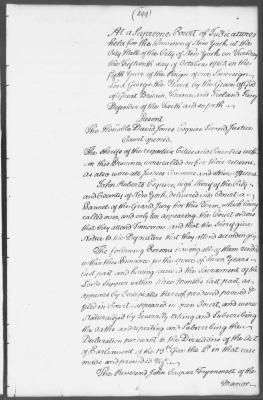 (299)
At a Supreme Court of Judicature
held for the Province of New York at the
City Hall of the City of New York on Tuesday
the fifteenth day of October 1765 in the
fifth Year of the Reign of our Sovereign
Lord George the Third by the Grace of God
of Great Britain, France and Ireland King
Defender of the Faith and so forth
Present
The Honble David Jones Esquire Second Justice
Court opened.
The Sheriffs of the respective Cities and Counties with
in this Province were called on for their returns,
as also were all Justices Coroners and other officers
John Roberts Esquire, high Sheriff of the City and
County of New York, delivered into Court a
Pannel of the Grand Jury for this Term, which being
called over, and only ten appearing, the Court orders
that they attend Tomorrow, and that the Sheriff give
Notice to the Defaulters that they attend accordingly
The following Persons having all of them resided
within this Province for the space of Seven Years
last past and having received the Sacrament of the
Lords Supper within three Months last past, as
appears by Certificates thereof produced proved &
filed in Court, appeared in open Court, and were
Naturalized by severally taking and Subscribing
the oaths and repeating and Subscribing the
Declaration pursuant to the Directions of the Act
of Parliament of the 13th Geo. the 2d in that case
made and provided Viz.
The Reverend John Casper Fryenmoet of the
Manor